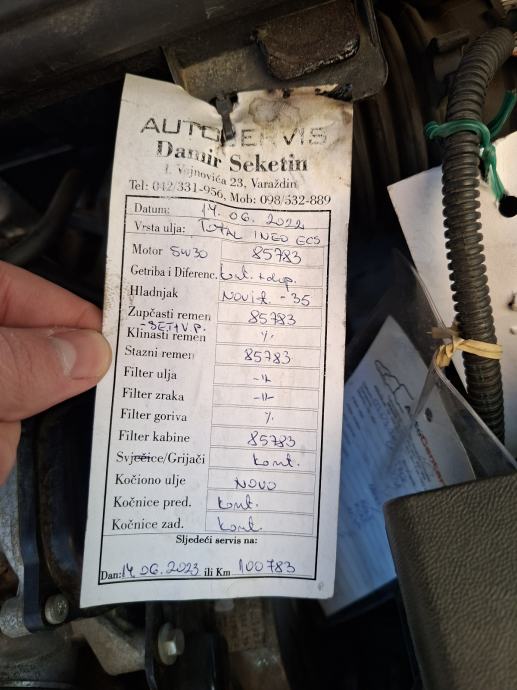 AUTOSERVIS
Damir Seketin
I. Vojnovića 23, Varaždin
Tel: 042/331-956, Mob: 098/532-889
Datum: 14. 06. 2022
Vrsta ulja: TOTAL INEO ECS
Motor 5W30 85783
Getriba i Diferenc. kont. + dop.
Hladnjak NOVI -35
Zupčasti remen 85783
-SET+V.P.
Klinasti remen %
Stazni remen 85783
Filter ulja -1-
Filter zraka -1-
Filter goriva %
Filter kabine 85783
Svječice/Grijači kont.
Kočiono ulje NOVO
Kočnice pred. kont.
Kočnice zad. kont.
Sljedeći servis na:
Dan: 14 06. 2023 ili Km 100783